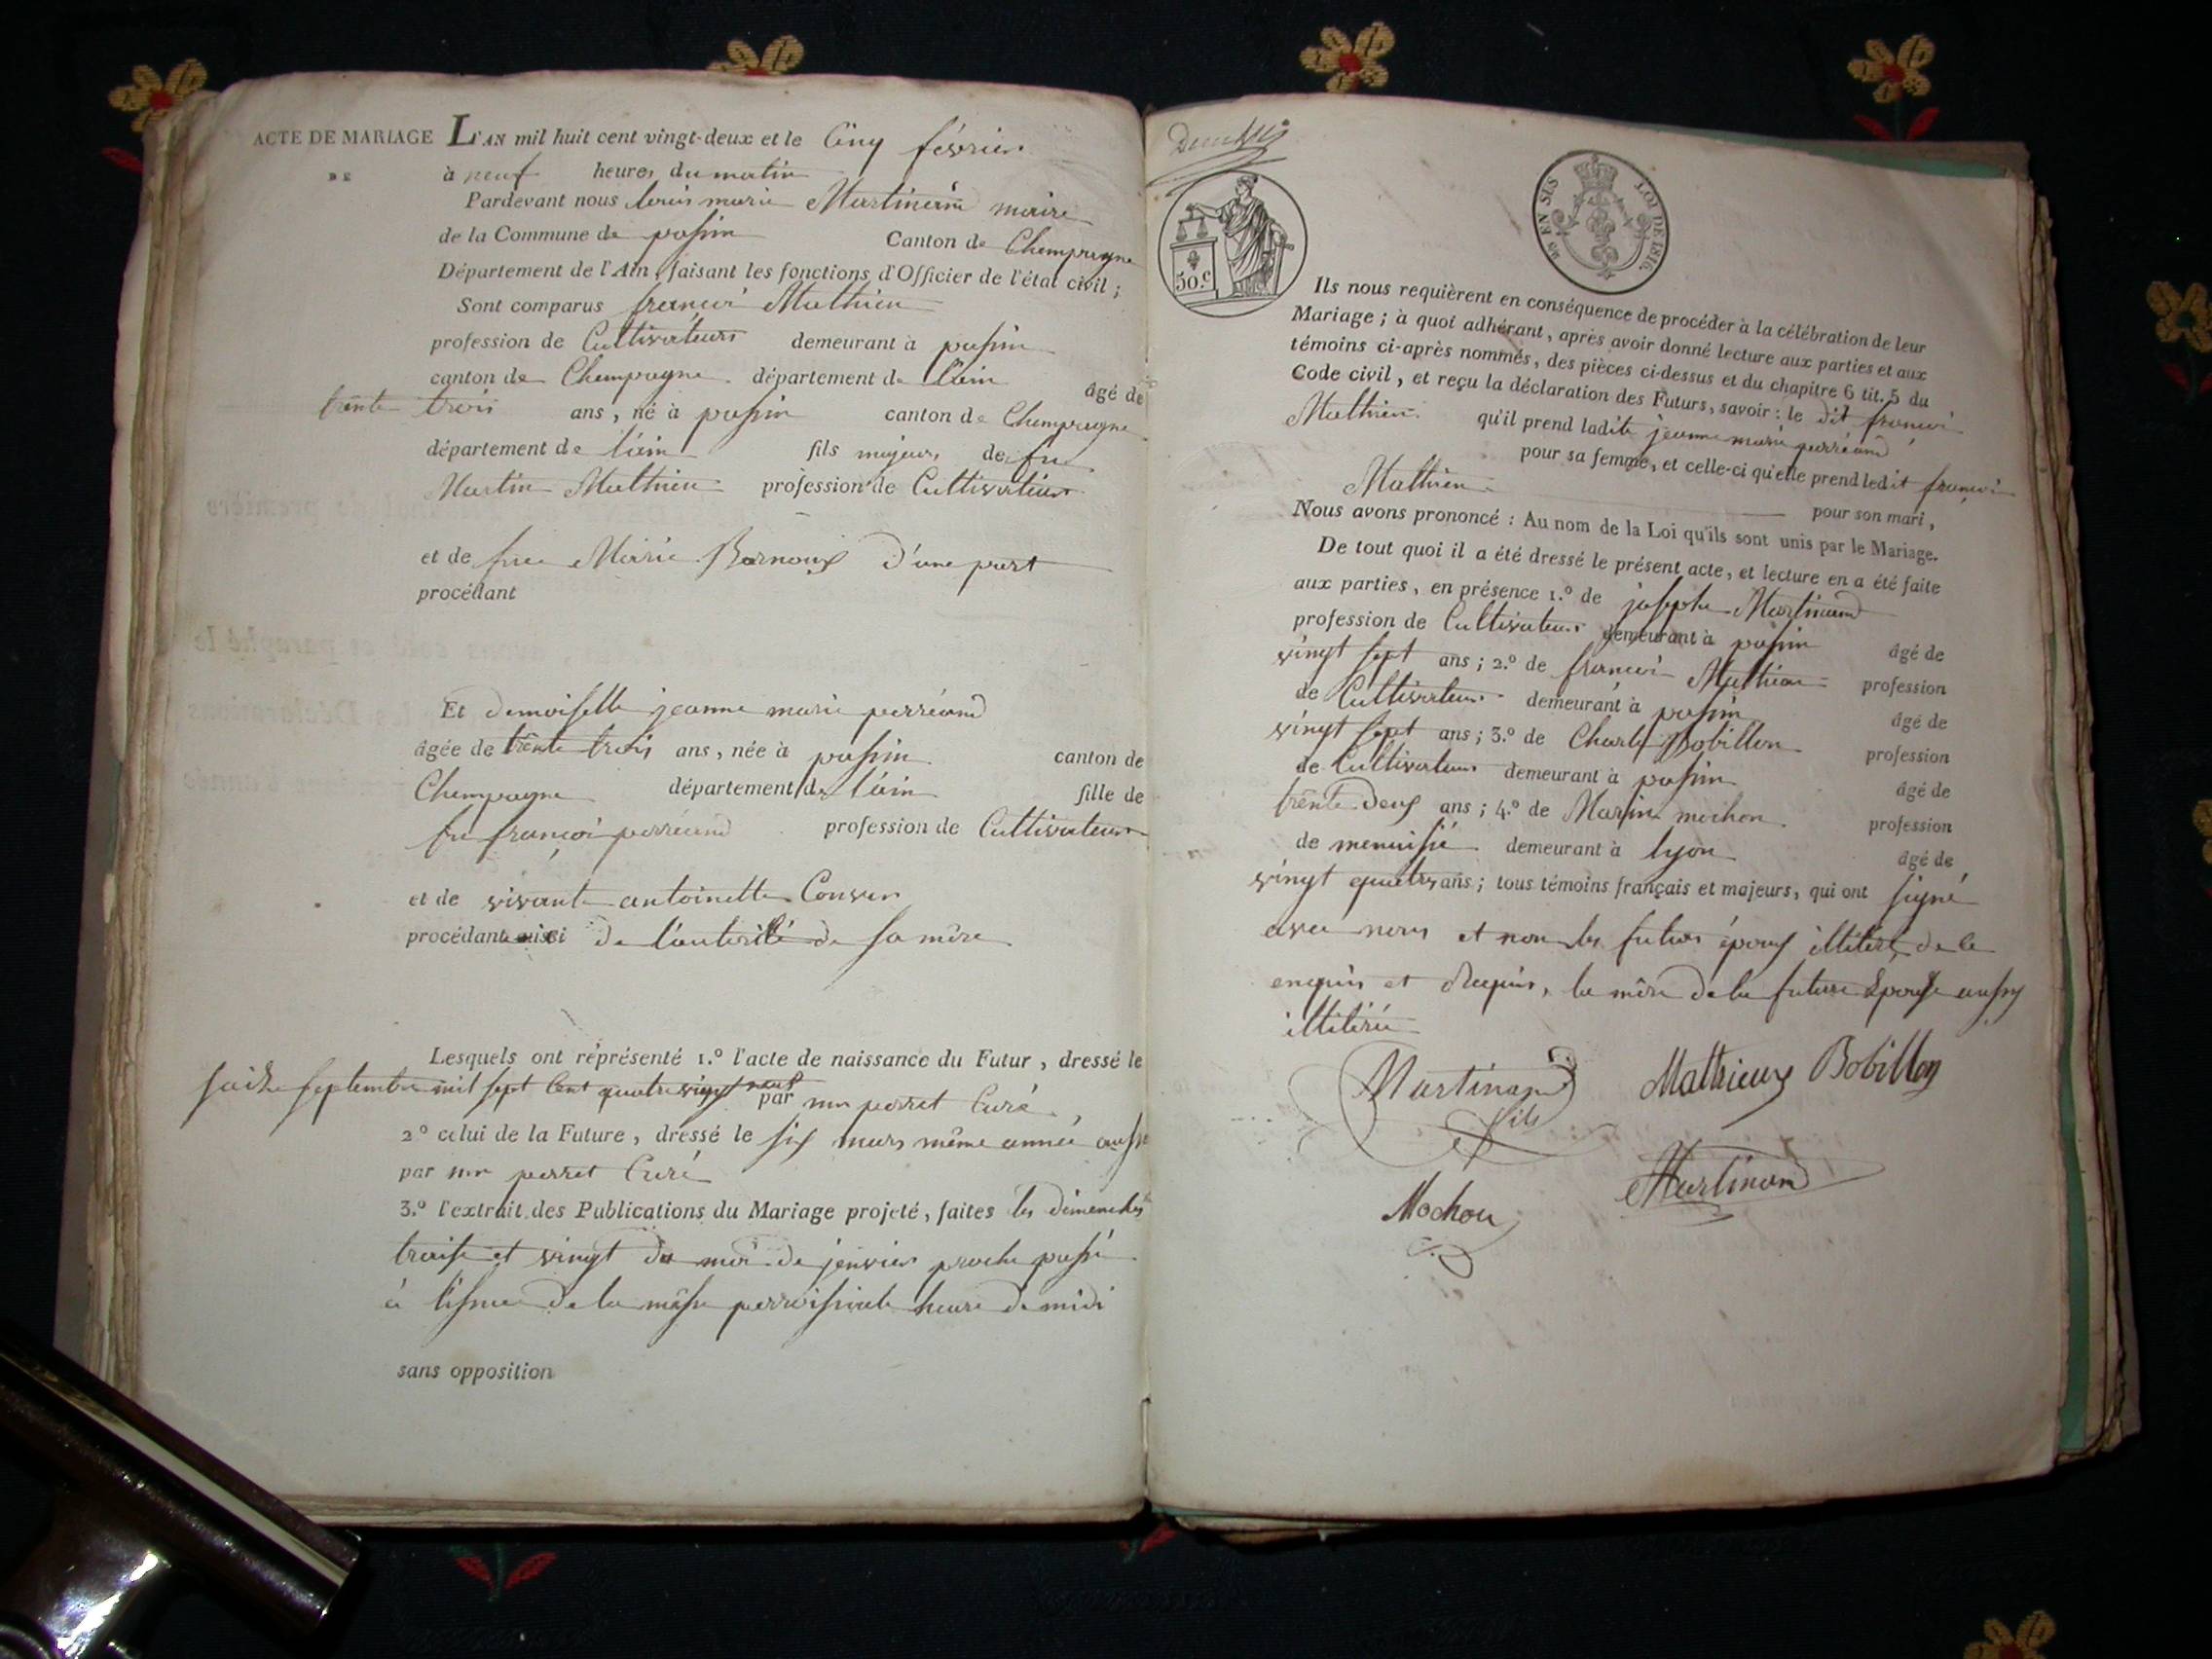 ACTE DE MARIAGE L'AN mil huit cent vingt-deux et le Cinq février
DE
à neuf heures du matin
Pardevant nous louis marie Martinand maire
de la Commune de passin Canton de Champagne
Département de l'Ain, faisant les fonctions d'Officier de l'état civil ;
Sont comparus françoi Mathieu
profession de Cultivateur demeurant à passin
canton de Champagne département de l'ain âgé de
trente trois ans, né à passin canton de Champagne
département de l'ain fils majeur de fu
Martin Mathieu profession de Cultivateur
et de fue Marie D'une part
procédant
Et demoiselle jeanne marie perréand
âgée de trente trois ans, née à passin canton de
Champagne département de l'ain fille de
fu françoi perréand profession de Cultivateur
et de vivante antoinette
procédant de l'autorité de sa mère
Lesquels ont représenté 1.º l'acte de naissance du Futur, dressé le
saize septembre mil sept Cent quatre vingt neuf par mr perret Curé,
2º celui de la Future, dressé le six mars même année aussi
par mr perret Curé
3.º l'extrait des Publications du Mariage projeté, faites les dimenches
traise et vingt du moi de janvier proche passé
à l'isue de la mâsse perroissiale heure de midi
sans opposition
50.c
EN SUS LOI DE 1816.
Ils nous requièrent en conséquence de procéder à la célébration de leur
Mariage ; à quoi adhérant, après avoir donné lecture aux parties et aux
témoins ci-après nommés, des pièces ci-dessus et du chapitre 6 tit. 5 du
Code civil, et reçu la déclaration des Futurs, savoir : le dit françoi
Mathieu qu'il prend ladite jeanne marie perréand
pour sa femme, et celle-ci qu'elle prend ledit françoi
Mathieu pour son mari,
Nous avons prononcé : Au nom de la Loi qu'ils sont unis par le Mariage.
De tout quoi il a été dressé le présent acte, et lecture en a été faite
aux parties, en présence 1.º de josephe Martinand
profession de Cultivateur demeurant à passin âgé de
vingt sept ans ; 2.º de françoi Mathieu profession
de Cultivateur demeurant à passin âgé de
vingt sept ans ; 3.º de Charle Bobillon profession
de Cultivateur demeurant à passin âgé de
trente deux ans ; 4.º de Marin mochon profession
de menuisié demeurant à lyon âgé de
vingt quatre ans ; tous témoins français et majeurs, qui ont signé
avec nous et non les futurs époux illitéré de ce
enquis et Requis, la mère de la future Epouse aussy
illitérée
Martinand fils Mathieux Bobillon
Mochon Martinand